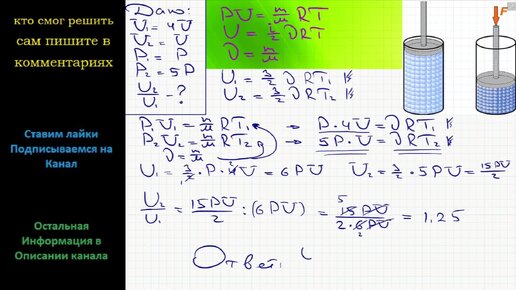 кто смог решить
сам пишите в
комментариях
Ставим лайки
Подписываемся на
Канал
Остальная
Информация в
Описании канала
Дано:
U₁ = 4U
U₂ = U
P₁ = P
P₂ = 5P
U₂/U₁ - ?
PU = m/μ RT
U = i/2 νRT
ν = m/μ
U₁ = 3/2 νRT₁
U₂ = 3/2 νRT₂
P₁U₁ = m/μ RT₁ → P·4U = νRT₁
P₂U₂ = m/μ RT₂ → 5P·U = νRT₂
ν = m/μ
U₁ = 3/2 · P · 4U = 6PU U₂ = 3/2 · 5PU = 15PU/2
U₂/U₁ = 15PU/2 : (6PU) = 15PU/2·6PU = 1,25
5
2
Ответ:
F